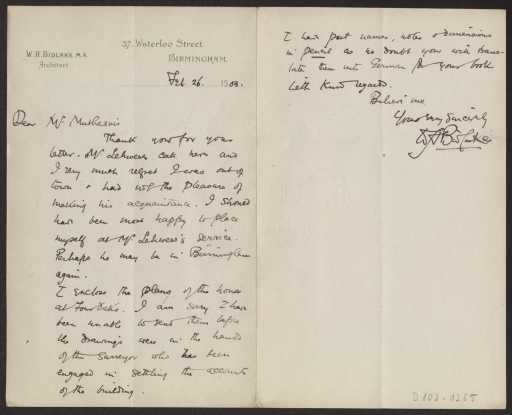 W. H. BIDLAKE, M.A.
Architect
37, Waterloo Street
BIRMINGHAM.
Feb 26. 1903.
Dear Mr Muthesius
Thank you for your
letter. Mr called here and
I very much regret I was out of
town & had not the pleasure of
making his acquaintance. I should
have been most happy to place
myself at Mr service.
Perhaps he may be in Birmingham
again.
I enclose the plans of the house
at Four Oaks. I am sorry I have
been unable to send them before
the drawings were in the hands
of the surveyor who has been
engaged in settling the accounts
of the building.
I have put names, notes & dimensions
in pencil as no doubt you will trans-
late them into German for your book
With kind regards.
Believe me
Yours very sincerely
W H Bidlake
D 102-1265